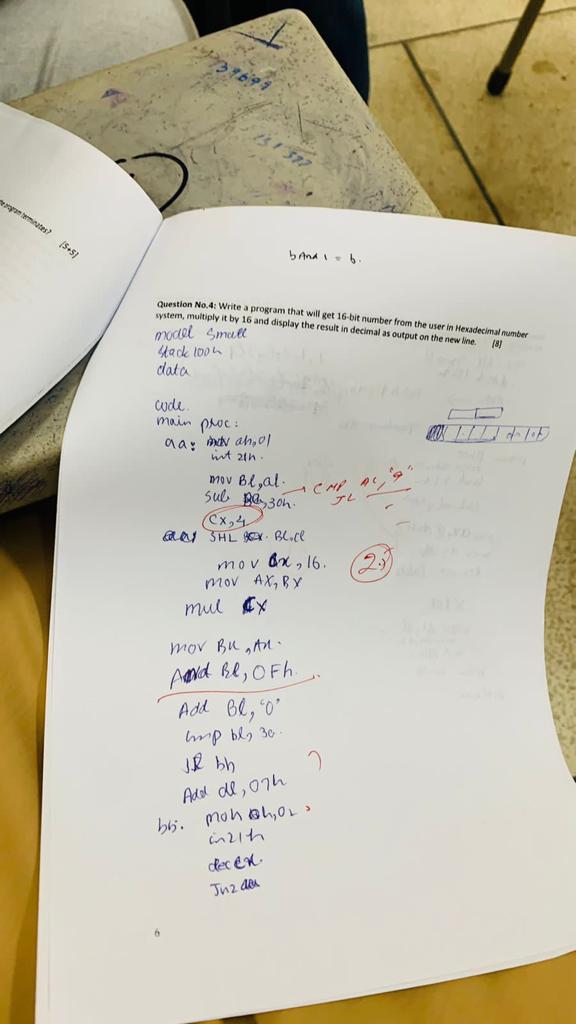 39699
the program terminates? [5+5]
b And 1 = b.
Question No.4: Write a program that will get 16-bit number from the user in Hexadecimal number
system, multiply it by 16 and display the result in decimal as output on the new line. [8]
model Small
Stack 100h
data
code.
main proc:
aa: mov ah,01
int 21h.
mov Bl,al.
Sub ,30h. → CMP AL,"9"
JL
Cx,4
SHL Bl,cl
mov Cx,16. 2.5
mov AX,BX
mul Cx
mov Bx,Ax.
And Bl,0Fh.
Add Bl,"0"
cmp bl,30.
JL bb
Add dl,07h
bb: moh ah,02
in21h
dec cx.
Jnz aa
6